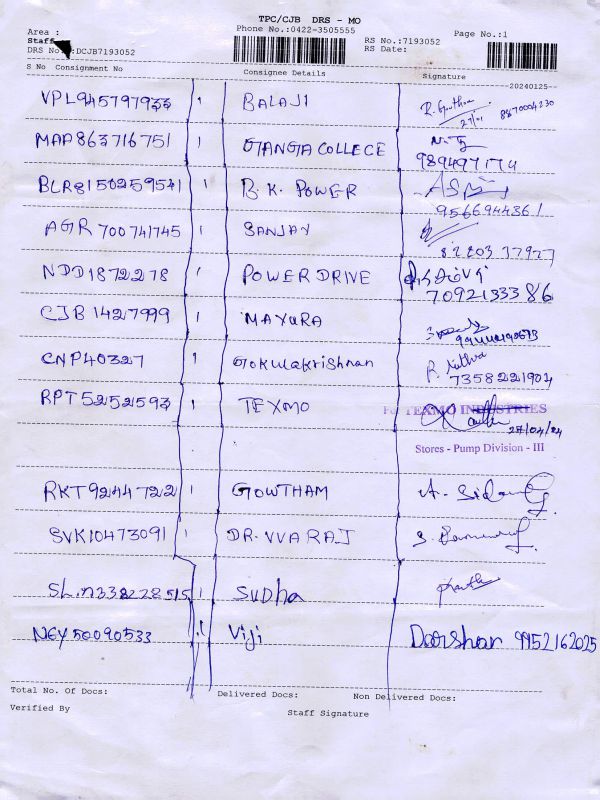 TPC/CJB DRS - MO
Area : Phone No.:0422-3505555 RS No.:7193052 Page No.:1
Staff RS Date:
DRS No :DCJB7193052
S No Consignment No Consignee Details Signature
--20240125--
VPL945797933 1 BALAJI 27/01 8870004230
MAA863716751 1 GANGA COLLEGE 989497174
BLR8150259541 1 B.K. POWER 9566944361
AGR 700741745 1 SANJAY
NDD1872278 1 POWER DRIVE 7092133386
CJB 1427999 1 MAYURA
CNP40327 1 Gokulakrishnan 7358221904
RPT5252593 1 TEXMO For TEXMO INDUSTRIES
27/04/24
Stores - Pump Division - III
RKT9244722 1 GOWTHAM
SVK10473091 1 DR. VVA RAJ
1 SUDha
NEY50090533 1 Viji Darshan 9952162025
Total No. Of Docs: Delivered Docs: Non Delivered Docs:
Verified By Staff Signature